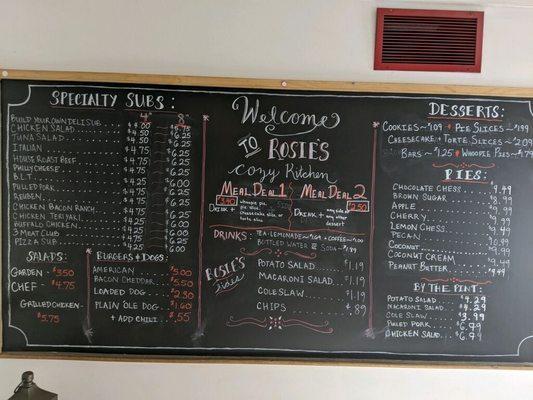 SPECIALTY SUBS:
4" 8"
BUILD YOUR OWN DELI SUB $4.00 $5.75
CHICKEN SALAD $4.50 $6.25
TUNA SALAD $4.50 $6.25
ITALIAN $4.75 $6.25
HOUSE ROAST BEEF $4.75 $6.25
PHILLY CHEESE $4.75 $6.25
B.L.T. $4.25 $6.00
PULLED PORK $4.75 $6.25
REUBEN $4.75 $6.25
CHICKEN BACON RANCH $4.75 $6.25
CHICKEN TERIYAKI $4.75 $6.25
BUFFALO CHICKEN $4.25 $6.00
3 MEAT CLUB $4.75 $6.25
PIZZA SUB $4.25 $6.00
SALADS:
GARDEN - $3.50
CHEF - $4.75
GRILLED CHICKEN -
$5.75
BURGERS & DOGS:
AMERICAN $5.00
BACON CHEDDAR $5.50
LOADED DOG $2.30
PLAIN OLE DOG $1.60
+ ADD CHILI $.55
Welcome
TO ROSIE'S
cozy Kitchen
MEAL DEAL 1
$3.40
DRINK +
whoopie pie,
pie slice,
cheesecake slice or
torte slice
MEAL DEAL 2
$2.50
DRINK +
any side or
any other
dessert
DRINKS: TEA · LEMONADE · COFFEE
BOTTLED WATER SODA
ROSIE'S sides
POTATO SALAD $1.19
MACARONI SALAD $1.19
COLESLAW $1.19
CHIPS $.89
DESSERTS:
COOKIES ~ $1.09 PIE SLICES ~ $1.99
CHEESECAKE + TORTE SLICES ~ $2.09
BARS ~ $1.25 WHOOPIE PIES ~ $.79
PIES:
CHOCOLATE CHESS $9.49
BROWN SUGAR $8.99
APPLE $9.99
CHERRY $9.99
LEMON CHESS $9.49
PECAN $10.99
COCONUT $9.99
COCONUT CREAM $9.49
PEANUT BUTTER $9.49
BY THE PINT:
POTATO SALAD $4.29
MACARONI SALAD $4.29
COLE SLAW $3.99
PULLED PORK $6.79
CHICKEN SALAD $6.79